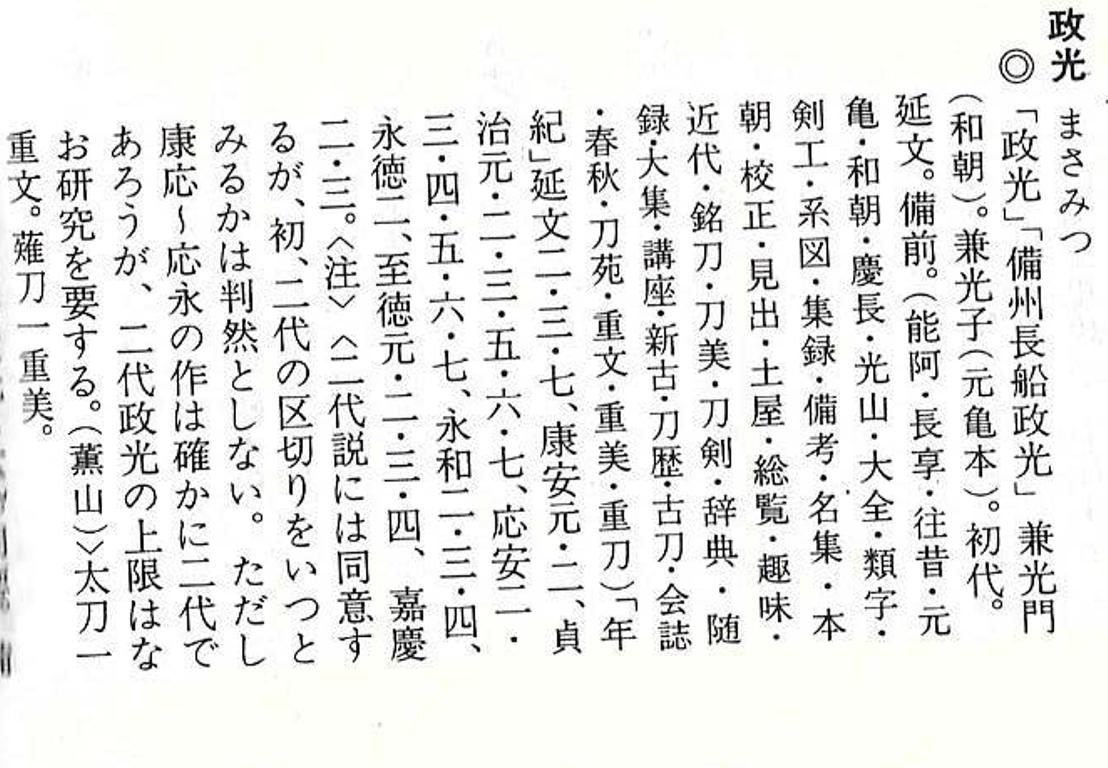 政光
まさみつ
◎「政光」「備州長船政光」 兼光門
(和朝)。兼光子(元亀本)。初代。
延文。備前。(能阿・長享・往昔・元
亀・和朝・慶長・光山・大全・類字・
剣工・系図・集録・備考・名集・本
朝・校正・見出・土屋・総覧・趣味・
近代・銘刀・刀美・刀剣・辞典・随
録・大集・講座・新古・刀歴・古刀・会誌
・春秋・刀苑・重文・重美・重刀)「年
紀」延文二・三・七、康安元・二、貞
治元・二・三・五・六・七、応安二・
三・四・五・六・七、永和二・三・四、
永徳二、至徳元・二・三・四、嘉慶
二・三。〈注〉〈二代説には同意す
るが、初、二代の区切りをいつと
みるかは判然としない。ただし
康応〜応永の作は確かに二代で
あろうが、二代政光の上限はな
お研究を要する。(薫山)〉太刀一
重文。薙刀一重美。